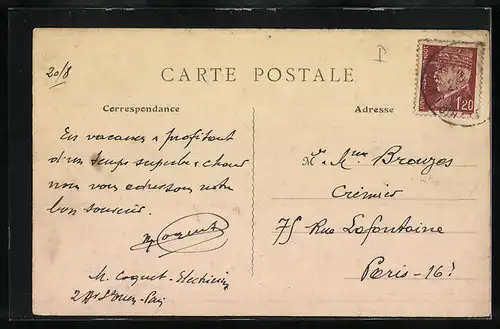 20/8
CARTE POSTALE
Correspondance
Adresse
En vacances & profitant
d'un temps superbe & chaud
nous vous adressons notre
bon souvenir.
Coquet
M. Coquet - Electricien
St Ouen - 
M. & Mme Brouzes
Crémier
75 Rue Lafontaine
Paris - 16e
1F20